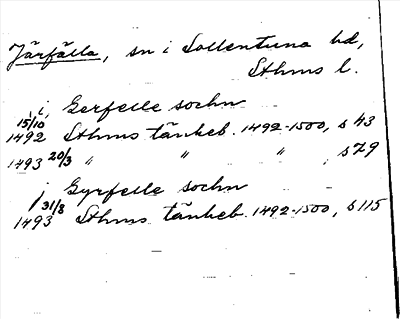 Järfälla, sn i Sollentuna hd,
Sthms l.
i Gerfelle sochn
15/10
1492 Sthms tänkeb. 1492-1500, s 43
1493 20/3 " " " , s 79
i Gyrfelle sochn
1493 31/8 Sthms tänkeb. 1492-1500, s 115